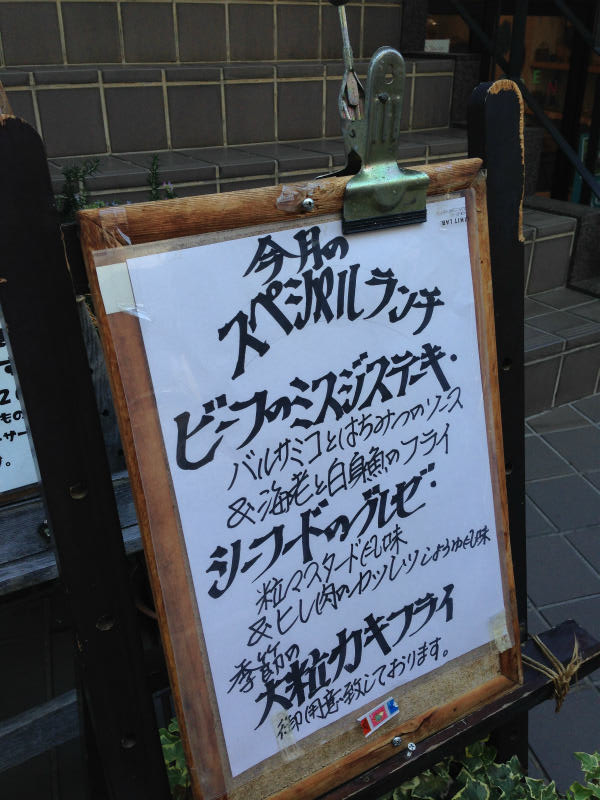 今月の
スペシャルランチ
ビーフのミスジステーキ.
バルサミコとはちみつのソース
&海老と白身魚のフライ
シーフードのブレゼ.
粒マスタード風味
&ヒレ肉のカツレツしょうゆ風味
季節の
大粒カキフライ
御用意致しております。